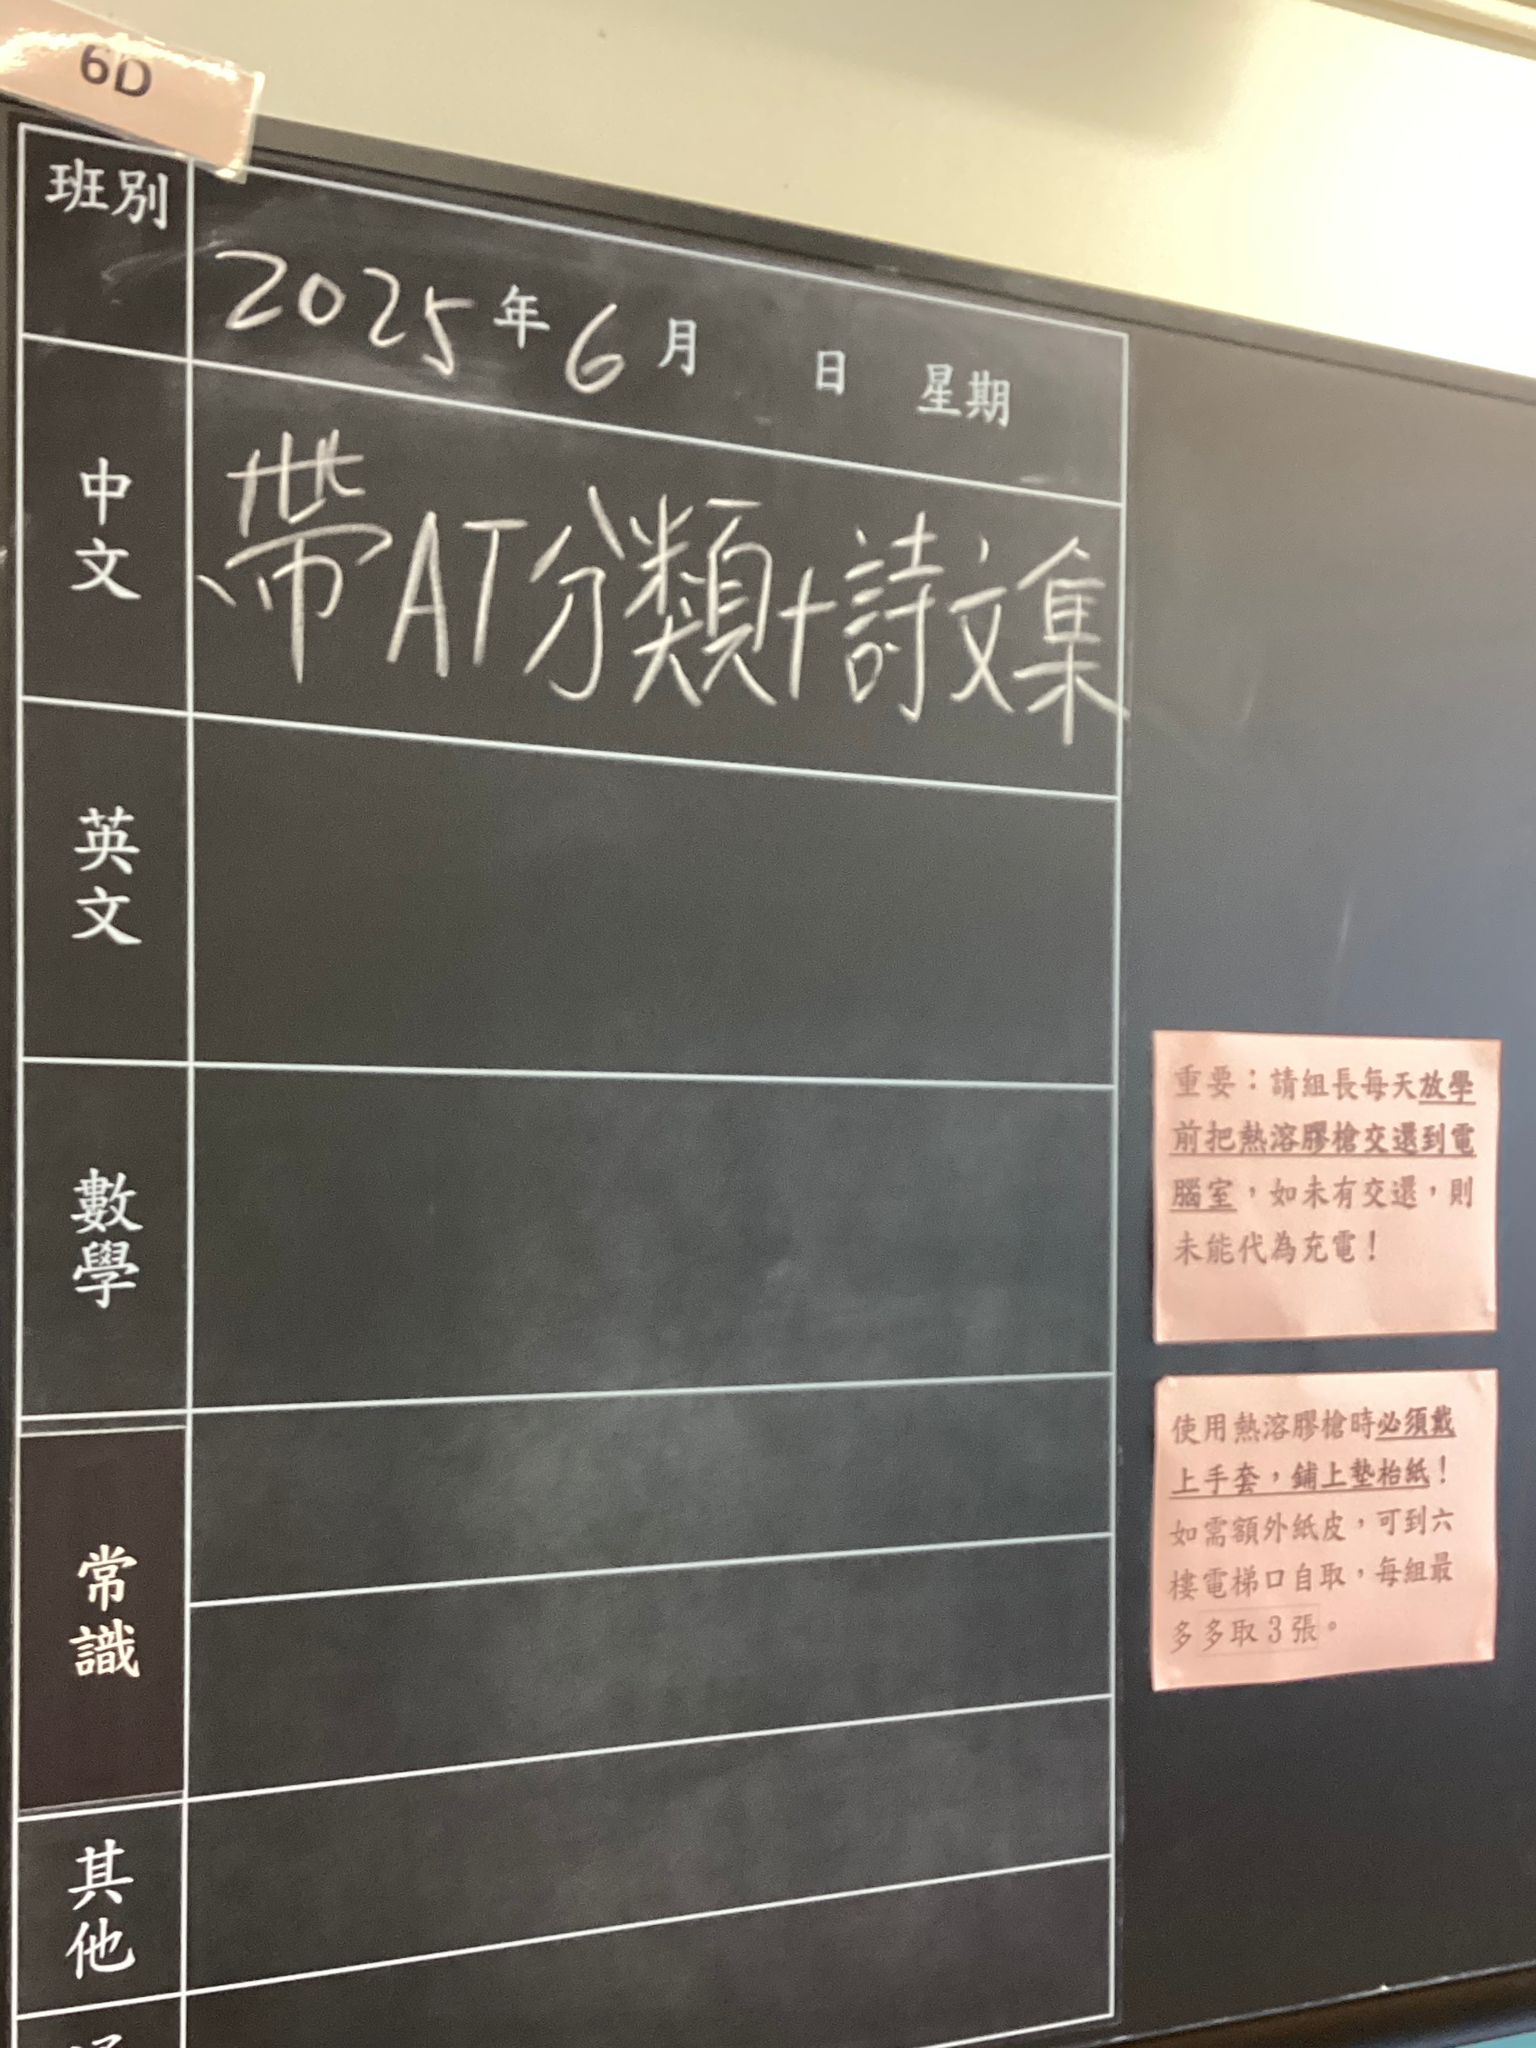 6D
班別
2025年6月 日 星期
中文
帶AT分類+詩文集
英文
數學
常識
其他
重要：請組長每天放學
前把熱溶膠槍交還到電
腦室，如未有交還，則
未能代為充電！
使用熱溶膠槍時必須戴
上手套，鋪上墊枱紙！
如需額外紙皮，可到六
樓電梯口自取，每組最
多多取3張。